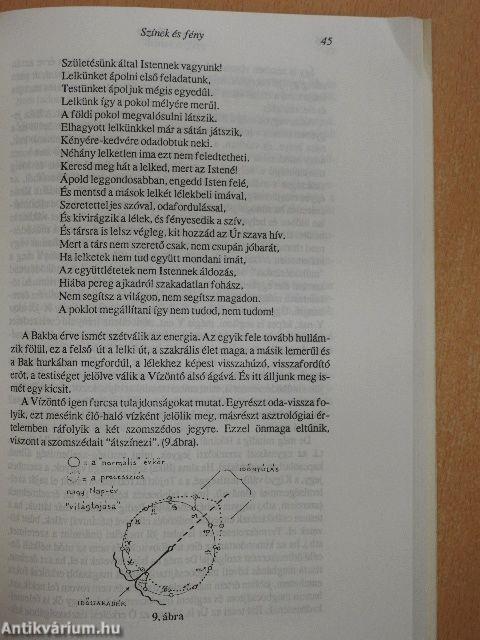 Színek és fény
45
Születésünk által Istennek vagyunk!
Lelkünket ápolni első feladatunk,
Testünket ápoljuk mégis egyedül.
Lelkünk így a pokol mélyére merül.
A földi pokol megvalósulni látszik.
Elhagyott lelkünkkel már a sátán játszik,
Kényére-kedvére odadobtuk neki.
Néhány lelketlen ima ezt nem feledtetheti.
Keresd meg hát a lelked, mert az Istené!
Ápold leggondosabban, engedd Isten felé,
És mentsd a mások lelkét lélekbeli imával,
Szeretetteljes szóval, odafordulással,
És kivirágzik a lélek, és fényesedik a szív,
És társra is lelsz végleg, kit hozzád az Úr szava hív.
Mert a társ nem szerető csak, nem csupán jóbarát,
Ha lelketek nem tud együtt mondani imát,
Az együttlétetek nem Istennek áldozás,
Hiába pereg ajkadról szakadatlan fohász,
Nem segítsz a világon, nem segítsz magadon.
A poklot megállítani így nem tudod, nem tudom!
A Bakba érve ismét szétválik az energia. Az egyik fele tovább hullám-
zik fölül, ez a felső út a lelki út, a szakrális élet maga, a másik lemerül és
a Bak hurkában megfordul, a lélekhez képest visszahúzó, visszafordító
erőt, a testiséget jelölve válik a Vízöntő alsó ágává. És itt álljunk meg is-
mét egy kicsit.
A Vízöntő igen furcsa tulajdonságokat mutat. Egyrészt oda-vissza fo-
lyik, ezt meséink élő-haló vízként jelölik meg, másrészt asztrológiai ér-
telemben ráfolyik a két szomszédos jegyre. Ezzel önmaga eltűnik,
viszont a szomszédait "átszínezi". (9.ábra).
= a "normális" évkör
= a precessziós
nagy Nap-év
"világtojása"
IDŐNYÚLÁS
IDŐSZAKADÉK
9. ábra
Antikvárium.hu